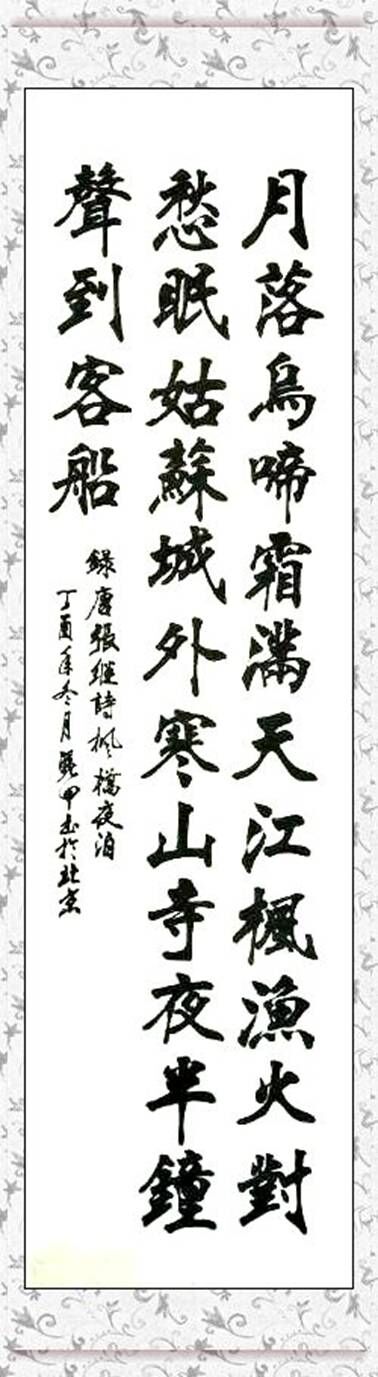 月落烏啼霜滿天江楓漁火對
愁眠姑蘇城外寒山寺夜半鐘
聲到客船
錄唐張继詩楓橋夜泊
丁酉年冬月甲书於北京